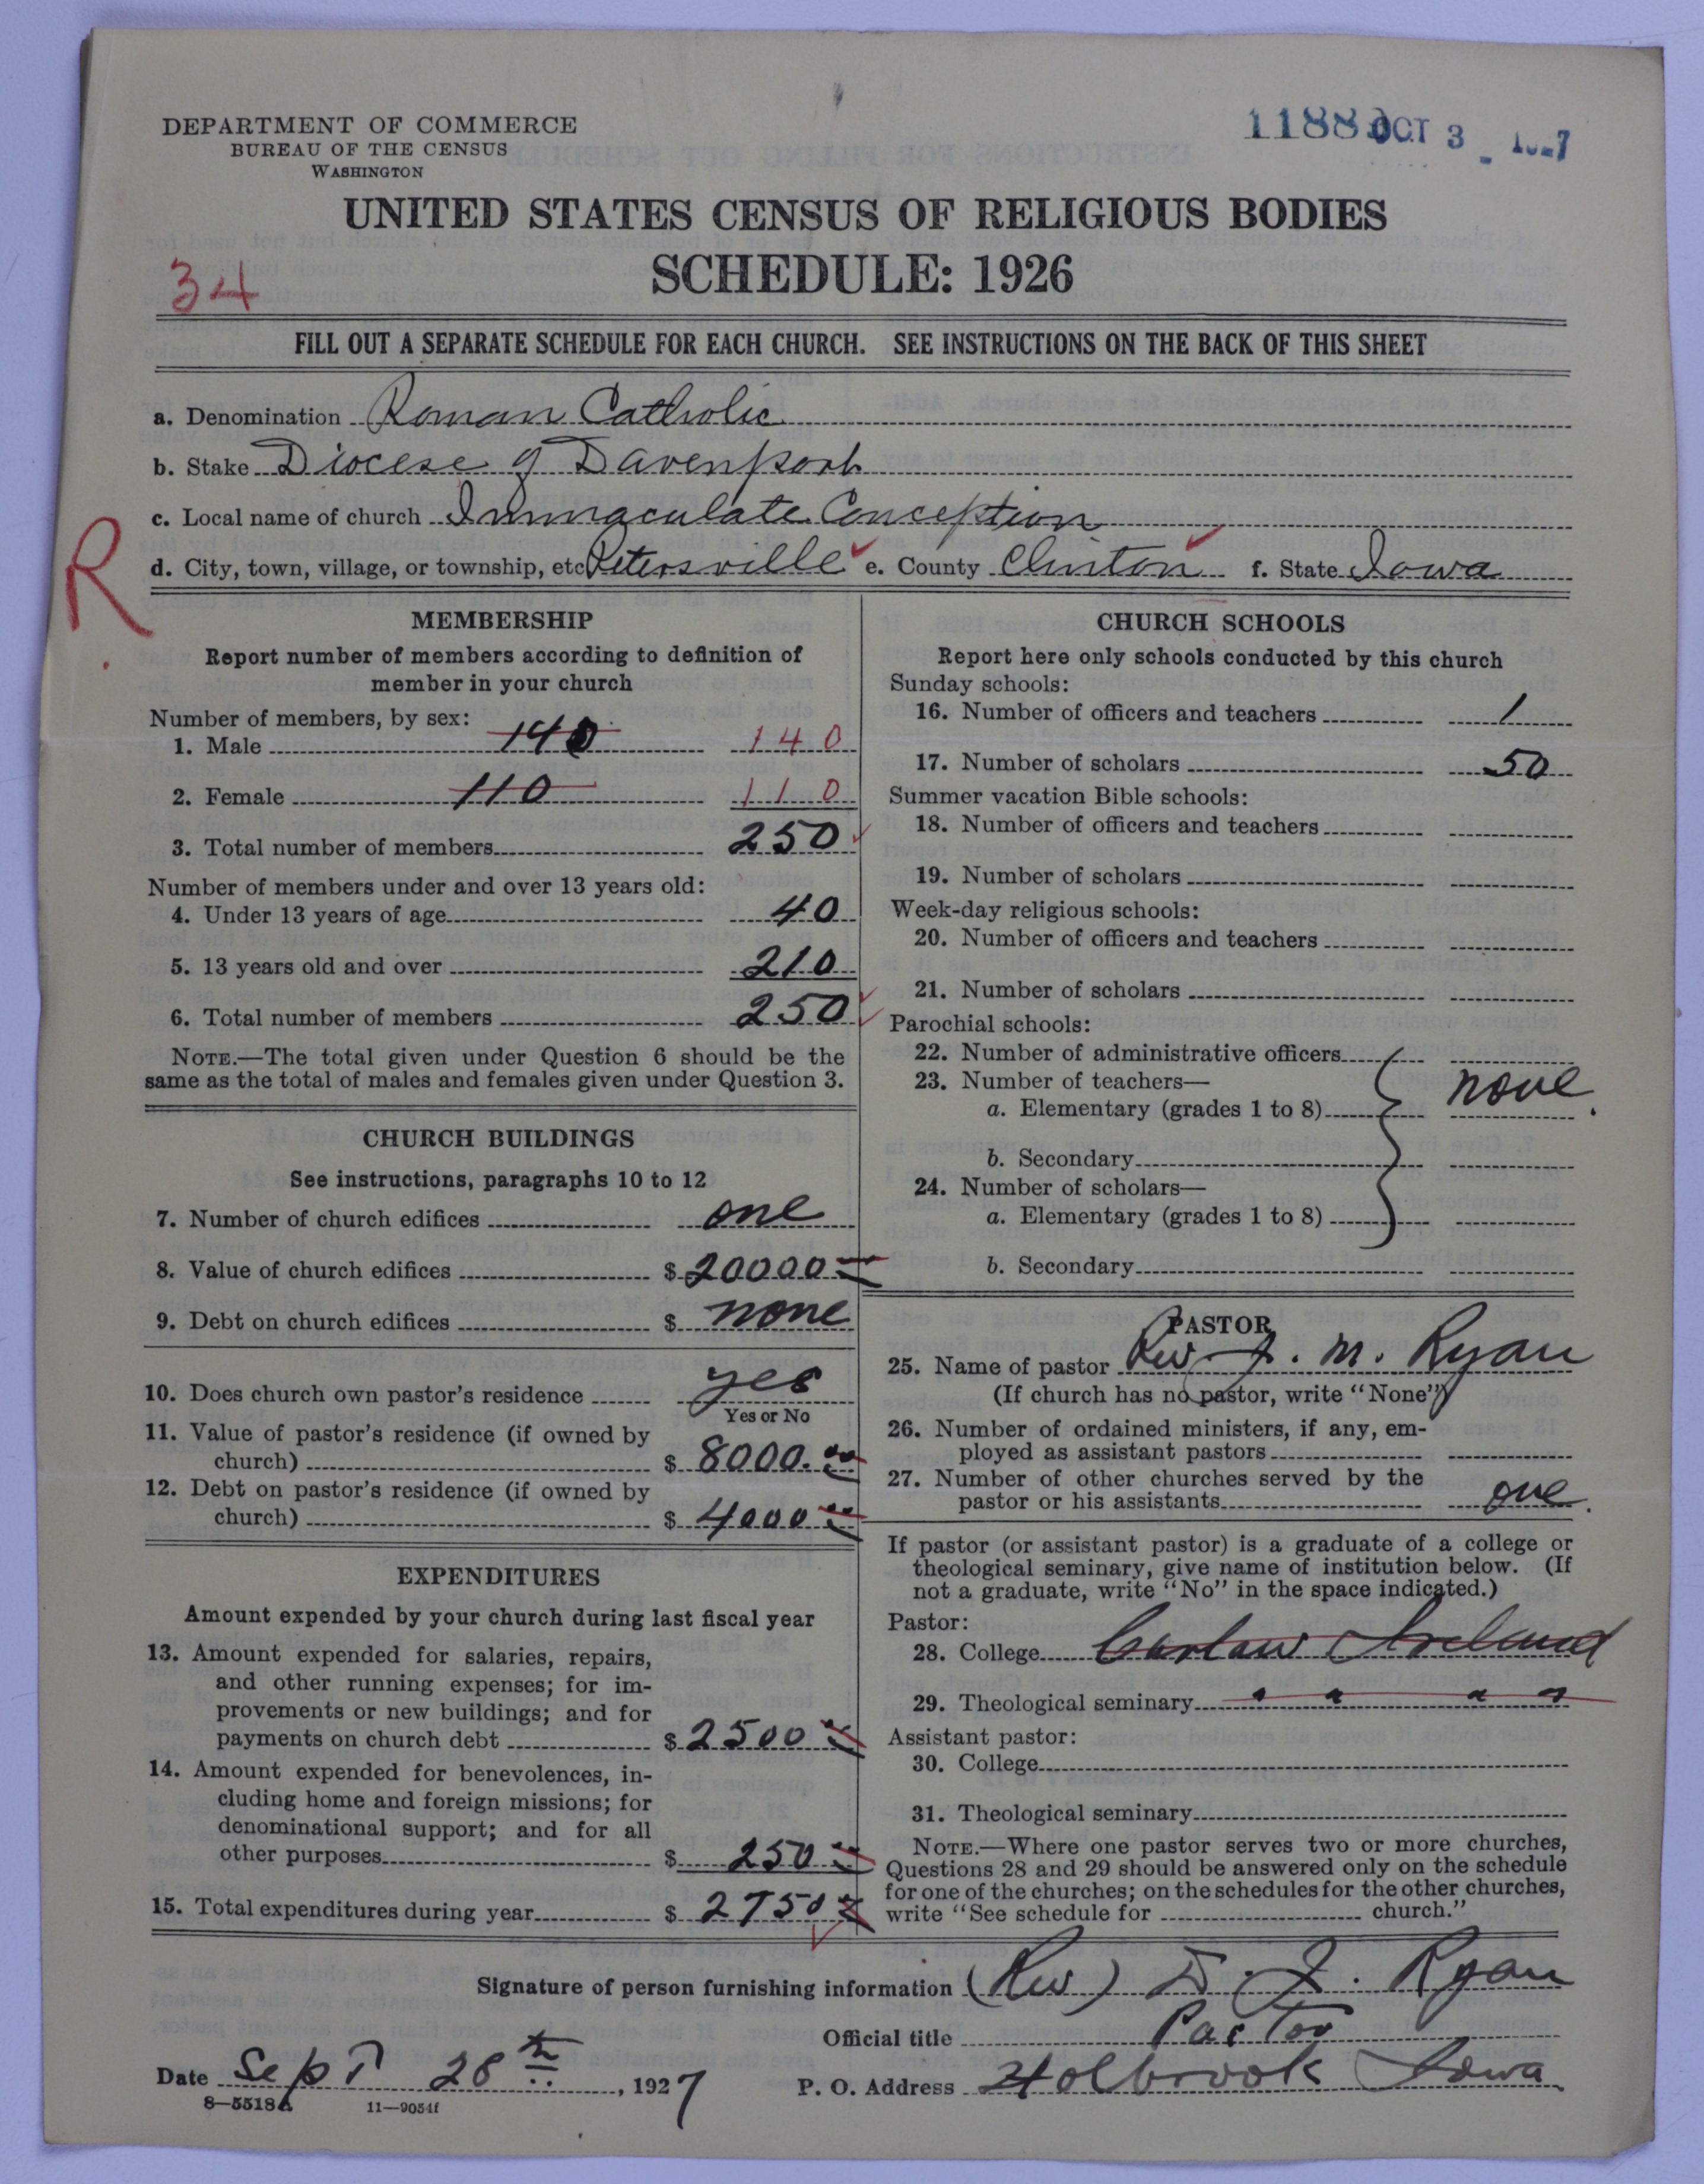 DEPARTMENT OF COMMERCE
BUREAU OF THE CENSUS
WASHINGTON
OCT 3
UNITED STATES CENSUS OF RELIGIOUS BODIES
SCHEDULE: 1926
34
FILL OUT A SEPARATE SCHEDULE FOR EACH CHURCH. SEE INSTRUCTIONS ON THE BACK OF THIS SHEET
a. Denomination Roman Catholic
b. Stake Diocese of Davenport
c. Local name of church Immaculate Conception
R
d. City, town, village, or township, etc Petersville e. County Clinton f. State Iowa
MEMBERSHIP
Report number of members according to definition of
member in your church
Number of members, by sex:
1. Male 140 140
2. Female 110 110
3. Total number of members 250
Number of members under and over 13 years old:
4. Under 13 years of age 40
5. 13 years old and over 210
6. Total number of members 250
NOTE.—The total given under Question 6 should be the
same as the total of males and females given under Question 3.
CHURCH BUILDINGS
See instructions, paragraphs 10 to 12
7. Number of church edifices one
8. Value of church edifices $ 20000
9. Debt on church edifices $ none
10. Does church own pastor's residence yes
Yes or No
11. Value of pastor's residence (if owned by
church) $ 8000.
12. Debt on pastor's residence (if owned by
church) $ 4000
EXPENDITURES
Amount expended by your church during last fiscal year
13. Amount expended for salaries, repairs,
and other running expenses; for im-
provements or new buildings; and for
payments on church debt $ 2500
14. Amount expended for benevolences, in-
cluding home and foreign missions; for
denominational support; and for all
other purposes $ 250
15. Total expenditures during year $ 2750
CHURCH SCHOOLS
Report here only schools conducted by this church
Sunday schools:
16. Number of officers and teachers 1
17. Number of scholars 50
Summer vacation Bible schools:
18. Number of officers and teachers
19. Number of scholars
Week-day religious schools:
20. Number of officers and teachers
21. Number of scholars
Parochial schools:
22. Number of administrative officers
23. Number of teachers— none.
a. Elementary (grades 1 to 8)
b. Secondary
24. Number of scholars—
a. Elementary (grades 1 to 8)
b. Secondary
PASTOR
25. Name of pastor Rev J. M. Ryan
(If church has no pastor, write "None")
26. Number of ordained ministers, if any, em-
ployed as assistant pastors
27. Number of other churches served by the
pastor or his assistants one.
If pastor (or assistant pastor) is a graduate of a college or
theological seminary, give name of institution below. (If
not a graduate, write "No" in the space indicated.)
Pastor:
28. College Carlow Ireland
29. Theological seminary " " " "
Assistant pastor:
30. College
31. Theological seminary
NOTE.—Where one pastor serves two or more churches,
Questions 28 and 29 should be answered only on the schedule
for one of the churches; on the schedules for the other churches,
write "See schedule for church."
Signature of person furnishing information (Rev) D. J. Ryan
Official title Pastor
Date Sept 28th, 1927 P. O. Address Holbrook Iowa
8—5518a 11—9054f